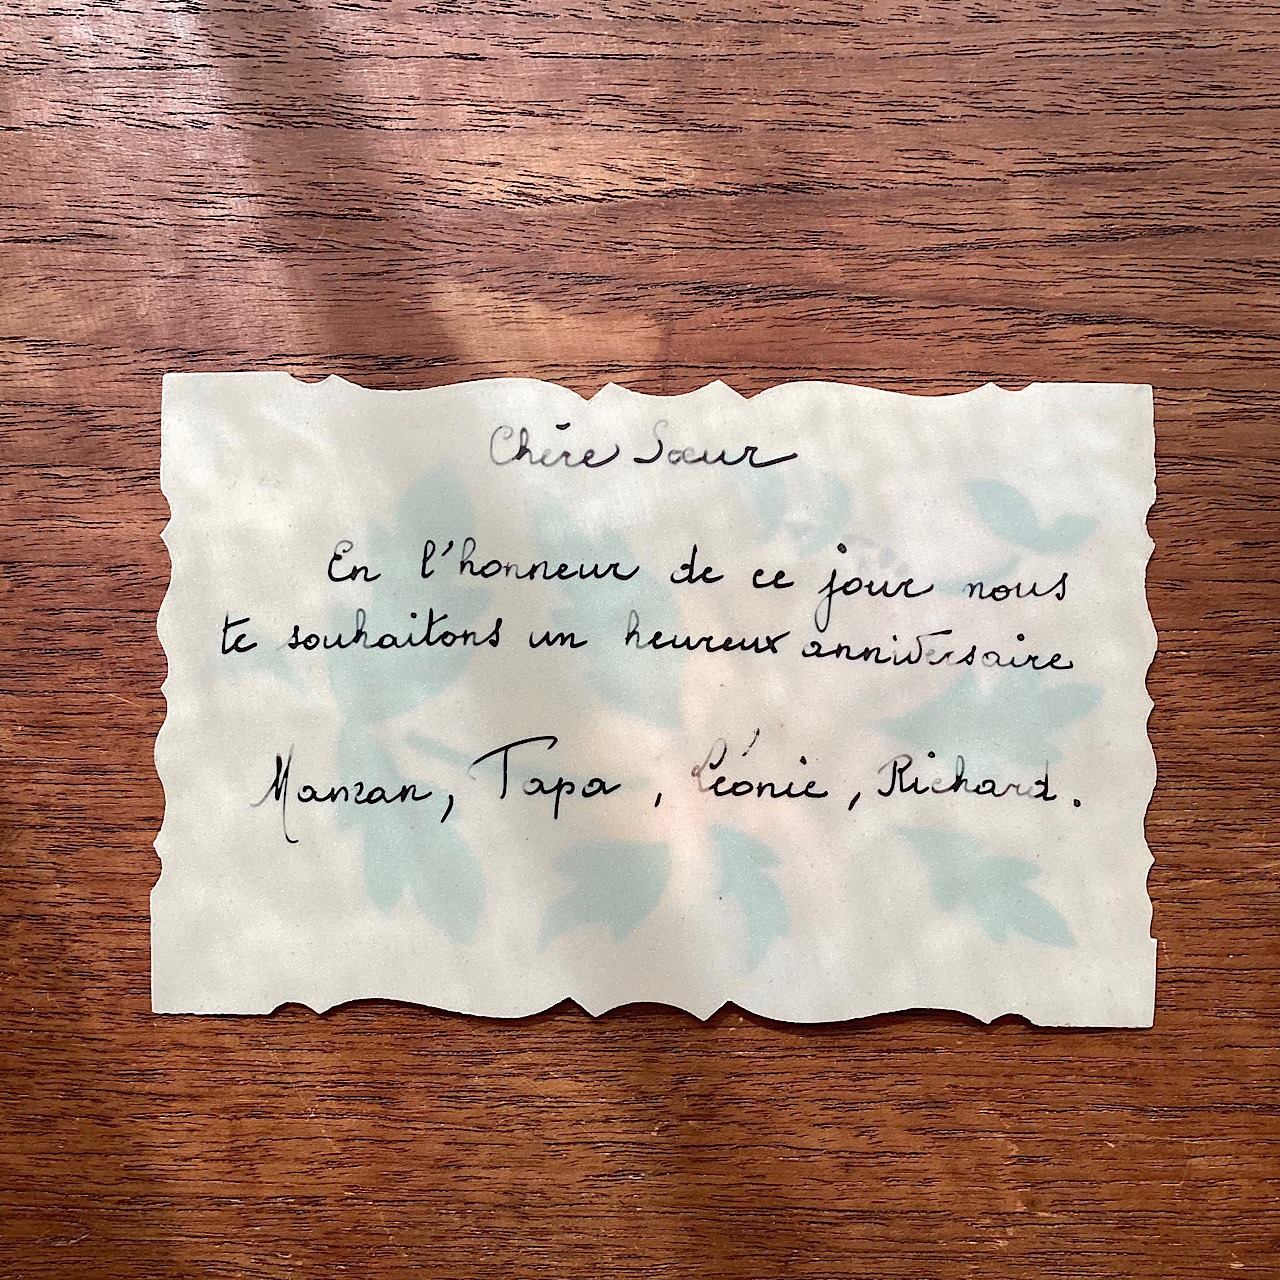 Chère Sœur
En l'honneur de ce jour nous
te souhaitons un heureux anniversaire
Manzan, Tapa, Léonie, Richard.